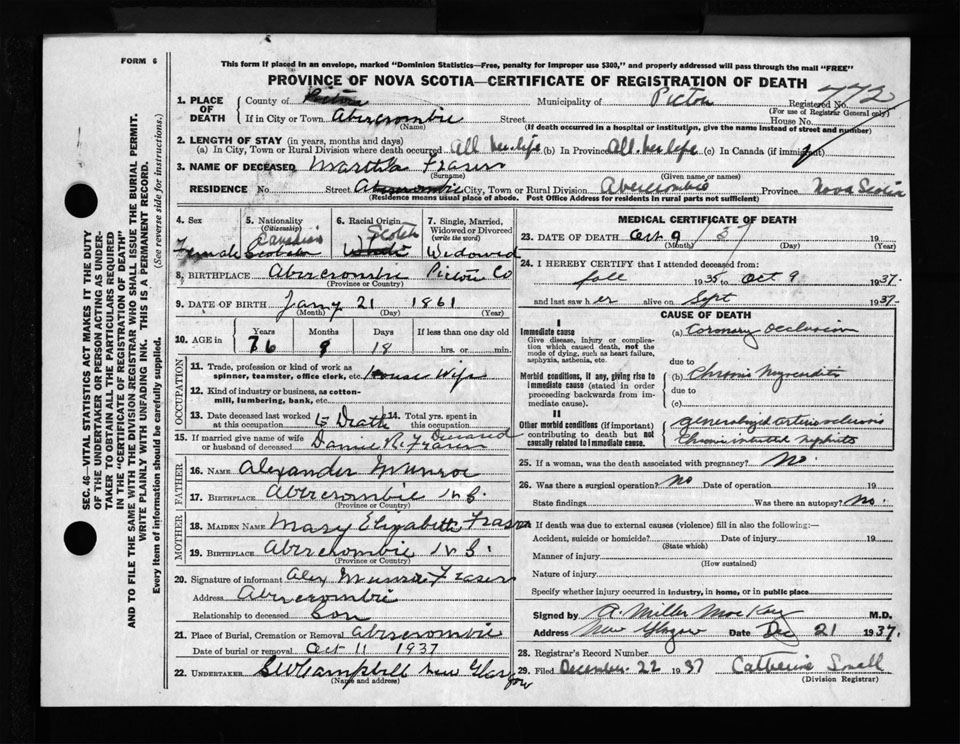 FORM 6
This form if placed in an envelope, marked "Dominion Statistics—Free, penalty for improper use $300," and properly addressed will pass through the mail "FREE"
PROVINCE OF NOVA SCOTIA—CERTIFICATE OF REGISTRATION OF DEATH
772
1. PLACE OF DEATH
County of Pictou Municipality of Pictou Registered No.
(For use of Registrar General only)
If in City or Town Abercrombie Street House No.
(Name) (If death occurred in a hospital or institution, give the name instead of street and number)
2. LENGTH OF STAY (in years, months and days)
(a) In City, Town or Rural Division where death occurred All her life (b) In Province All her life (c) In Canada (if immigrant)
3. NAME OF DECEASED Martha Fraser
(Surname) (Given name or names)
RESIDENCE No. Street Abercrombie City, Town or Rural Division Abercrombie Province Nova Scotia
(Residence means usual place of abode. Post Office Address for residents in rural parts not sufficient)
4. Sex 5. Nationality (Citizenship) 6. Racial Origin 7. Single, Married, Widowed or Divorced (write the word)
Canadian Scotch
Female Widowed
8. BIRTHPLACE Abercrombie Pictou Co
(Province or Country)
9. DATE OF BIRTH Jany 21 1861
(Month) (Day) (Year)
10. AGE in Years Months Days If less than one day old
76 8 18 hrs. or min.
OCCUPATION
11. Trade, profession or kind of work as spinner, teamster, office clerk, etc. House Wife
12. Kind of industry or business, as cotton-mill, lumbering, bank, etc.
13. Date deceased last worked at this occupation to Death 14. Total yrs. spent in this occupation
15. If married give name of wife or husband of deceased Daniel R. Fraser
FATHER
16. NAME Alexander Munroe
17. BIRTHPLACE Abercrombie N.S.
(Province or Country)
MOTHER
18. MAIDEN NAME Mary Elizabeth Fraser
19. BIRTHPLACE Abercrombie N.S.
(Province or Country)
20. Signature of informant Alex Munroe Fraser
Address Abercrombie
Relationship to deceased Son
21. Place of Burial, Cremation or Removal Abercrombie
Date of burial or removal Oct 11 1937
22. UNDERTAKER Campbell New Glasgow
(Name and address)
MEDICAL CERTIFICATE OF DEATH
23. DATE OF DEATH Oct 9 37 19
(Month) (Day) (Year)
24. I HEREBY CERTIFY that I attended deceased from:
fall 1935 to Oct 9 1937.
and last saw her alive on Sept 1937.
CAUSE OF DEATH
I
Immediate cause
Give disease, injury or complication which caused death, not the mode of dying, such as heart failure, asphyxia, asthenia, etc.
(a) Coronary Occlusion
due to
Morbid conditions, if any, giving rise to immediate cause (stated in order proceeding backwards from immediate cause).
(b) Chronic Myocarditis
due to
(c)
II
Other morbid conditions (if important) contributing to death but not causally related to immediate cause.
generalized arteriosclerosis
25. If a woman, was the death associated with pregnancy? No.
26. Was there a surgical operation? No Date of operation 19
State findings Was there an autopsy? No.
27. If death was due to external causes (violence) fill in also the following:—
Accident, suicide or homicide? Date of injury 19
(State which)
Manner of injury
(How sustained)
Nature of injury
Specify whether injury occurred in industry, in home, or in public place
Signed by A. Miller MacKay M.D.
Address New Glasgow Date Dec 21 1937.
28. Registrar's Record Number
29. Filed December 22 1937 Catherine Small
(Division Registrar)
SEC. 46—VITAL STATISTICS ACT MAKES IT THE DUTY
OF THE UNDERTAKER OR PERSON ACTING AS UNDER-
TAKER TO OBTAIN ALL THE PARTICULARS REQUIRED
IN THE "CERTIFICATE OF REGISTRATION OF DEATH"
AND TO FILE THE SAME WITH THE DIVISION REGISTRAR WHO SHALL ISSUE THE BURIAL PERMIT.
WRITE PLAINLY WITH UNFADING INK. THIS IS A PERMANENT RECORD.
Every item of information should be carefully supplied. (See reverse side for instructions.)